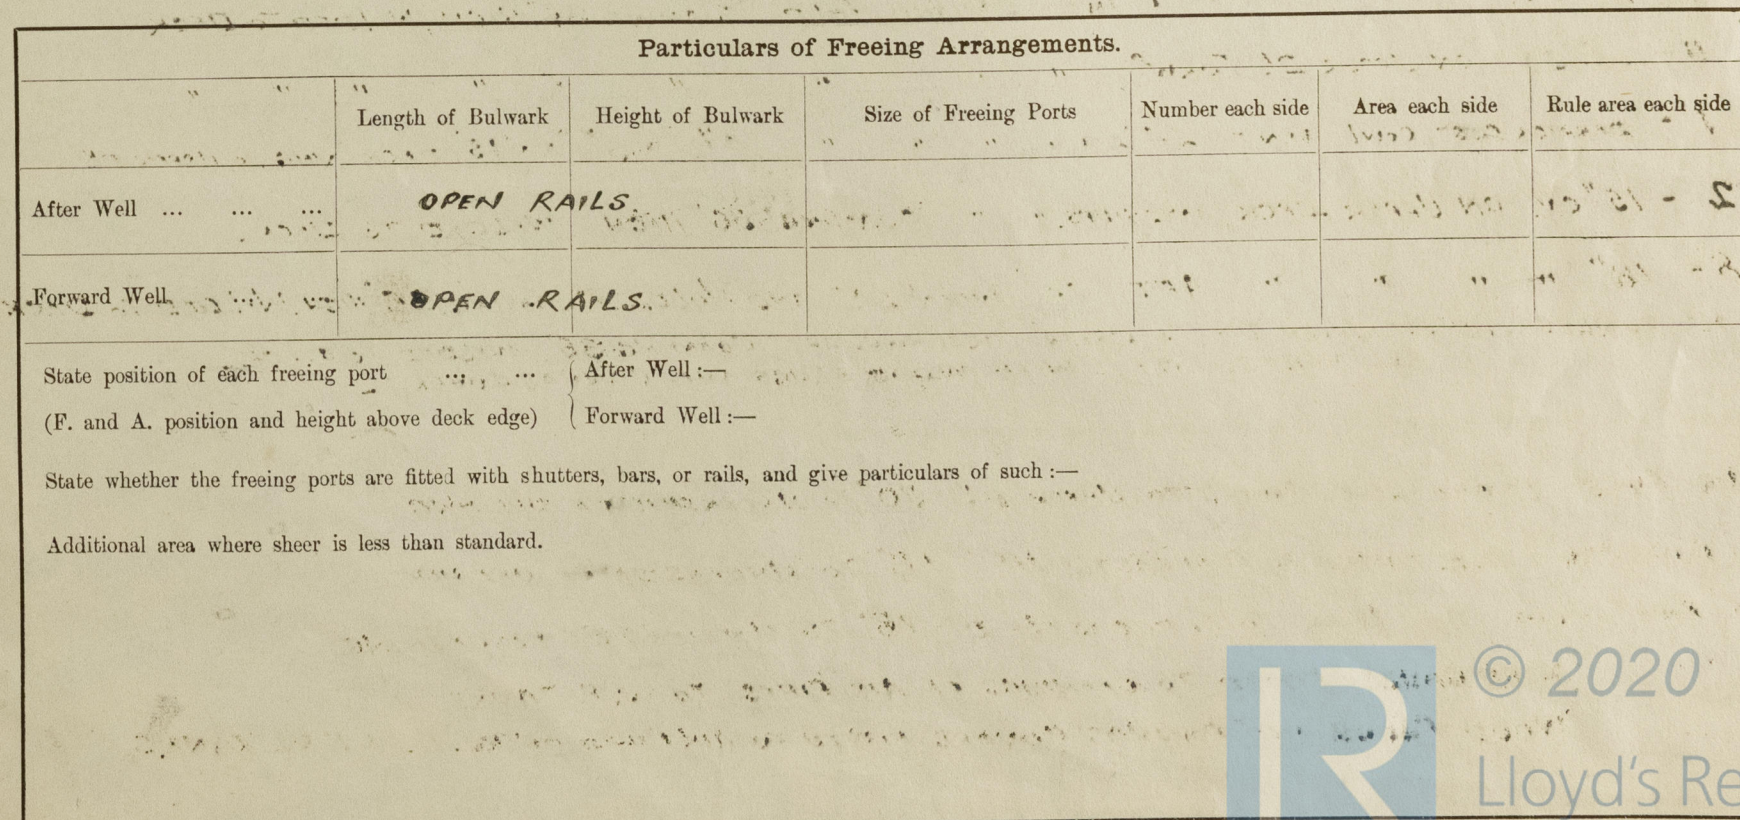 Particulars of Freeing Arrangements.
Length of Bulwark Height of Bulwark Size of Freeing Ports Number each side Area each side Rule area each side
After Well ... ... ... OPEN RAILS.
Forward Well ... ... OPEN RAILS.
State position of each freeing port ... ... After Well :—
(F. and A. position and height above deck edge) Forward Well :—
State whether the freeing ports are fitted with shutters, bars, or rails, and give particulars of such :—
Additional area where sheer is less than standard.
© 2020
LR
Lloyd's Re